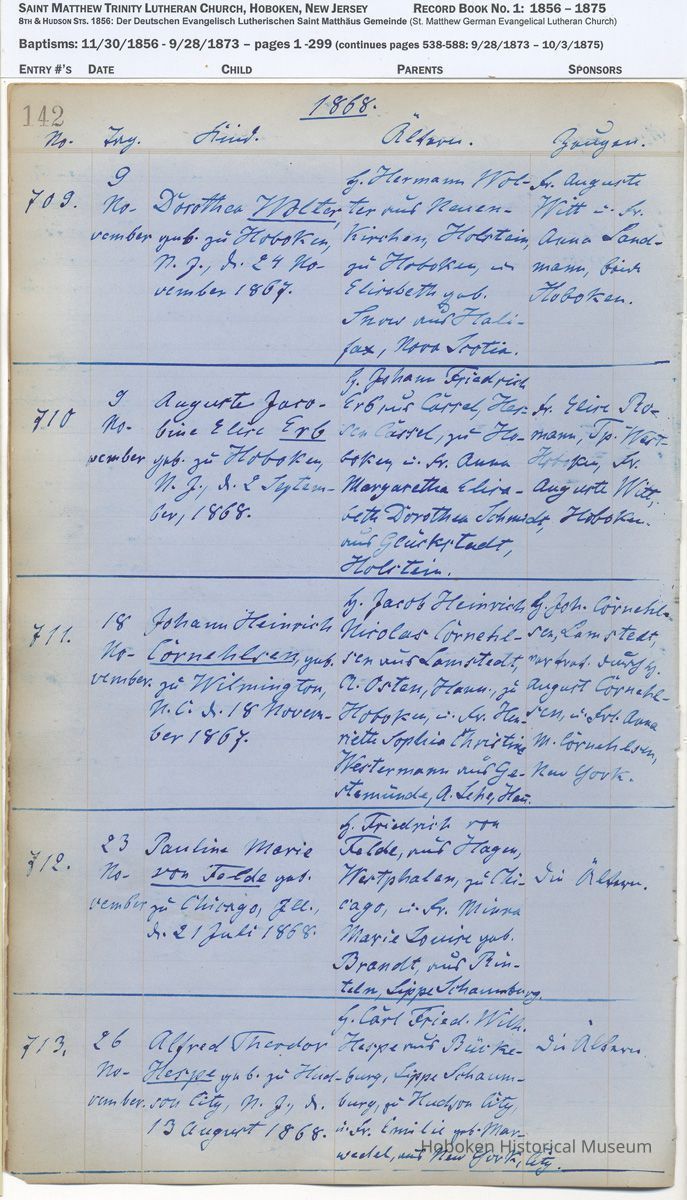 SAINT MATTHEW TRINITY LUTHERAN CHURCH, HOBOKEN, NEW JERSEY RECORD BOOK NO. 1: 1856 – 1875
8TH & HUDSON STS. 1856: Der Deutschen Evangelisch Lutherischen Saint Matthäus Gemeinde (St. Matthew German Evangelical Lutheran Church)
Baptisms: 11/30/1856 - 9/28/1873 – pages 1 -299 (continues pages 538-588: 9/28/1873 – 10/3/1875)
ENTRY #'S DATE CHILD PARENTS SPONSORS
142
1868.
No. Tag. Kind. Ältern. Zeugen.
709.
9
No-
vember
Dorothea Wolter,
geb. zu Hoboken,
N. J., d. 24 No-
vember 1867.
H. Hermann Wol-
ter aus Neuen-
kirchen, Holstein,
zu Hoboken, u
Elisabeth geb.
Snow aus Hali-
fax, Nova Scotia.
Fr. Auguste
Witt u. Fr.
Anna Land-
mann, beide
Hoboken.
710
9
No-
vember
Auguste Jaco-
bine Elise Erb
geb. zu Hoboken,
N. J., d. 2 Septem-
ber, 1868.
H. Johann Friedrich
Erb aus Cassel, Hes-
sen Cassel, zu Ho-
boken u. Fr. Anna
Margaretha Elisa-
beth Dorothea Schmidt,
aus Glückstadt,
Holstein.
Fr. Elise Ro-
mann, Tp. West-
Hoboken, Fr.
Auguste Witt,
Hoboken.
711.
18
No-
vember.
Johann Heinrich
Cörnehlsen, geb.
zu Wilmington,
N. C. d. 18 Novem-
ber 1867.
H. Jacob Heinrich
Nicolas Cörnehl-
sen aus Lamstedt,
A. Osten, Hann., zu
Hoboken, u. Fr. Hen-
riette Sophia Christine
Westermann aus Ge-
stemünde, A. Lehe, Han.
H. Joh. Cörnehl-
sen, Lamstedt,
vertret. durch H.
August Cörnehl-
sen, u. Frl. Anna
M. Cörnehlsen,
New York.
712.
23
No-
vember
Pauline Marie
von Felde geb.
zu Chicago, Ill.,
d. 21 Juli 1868.
H. Friedrich von
Felde, aus Hagen,
Westphalen, zu Chi-
cago, u. Fr. Minna
Marie Louise geb.
Brandt, aus Rin-
teln, Lippe Schaumburg.
Die Ältern.
713.
26
No-
vember.
Alfred Theodor
Hespe geb. zu Hud-
son City, N. J., d.
13 August 1868.
H. Carl Fried. Wilh.
Hespe aus Bücke-
burg, Lippe Schaum-
burg, zu Hudson City,
u. Fr. Emilie geb. Mar-
wedel, aus New York, City.
Die Ältern.
Hoboken Historical Museum